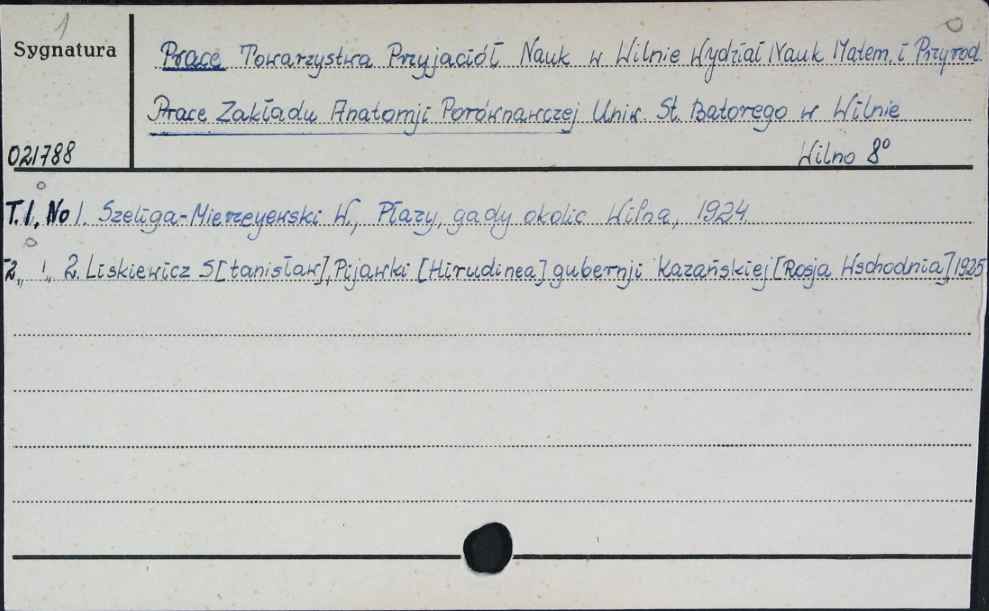 1
Sygnatura
Prace Towarzystwa Przyjaciół Nauk w Wilnie Wydział Nauk Matem. i Przyrod.
Prace Zakładu Anatomji Porównawczej Uniw. St. Batorego w Wilnie
021788
Wilno 8°
T.1, No 1. Szeliga-Mierzeyewski W., Płazy, gady okolic Wilna, 1924
2 „ „ 2. Liskiewicz S[tanisław], Pijawki [Hirudinea] gubernji Kazańskiej [Rosja Wschodnia] 1925